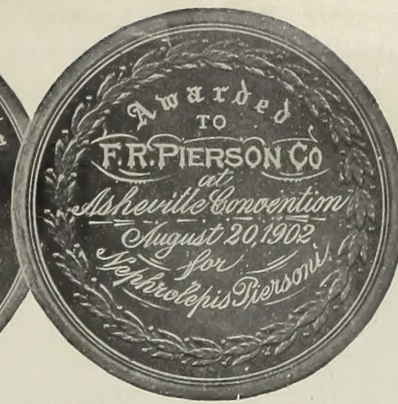 Awarded
TO
F.R. PIERSON CO
at
Asheville Convention
August 20, 1902
for
Nephrolepis Piersoni